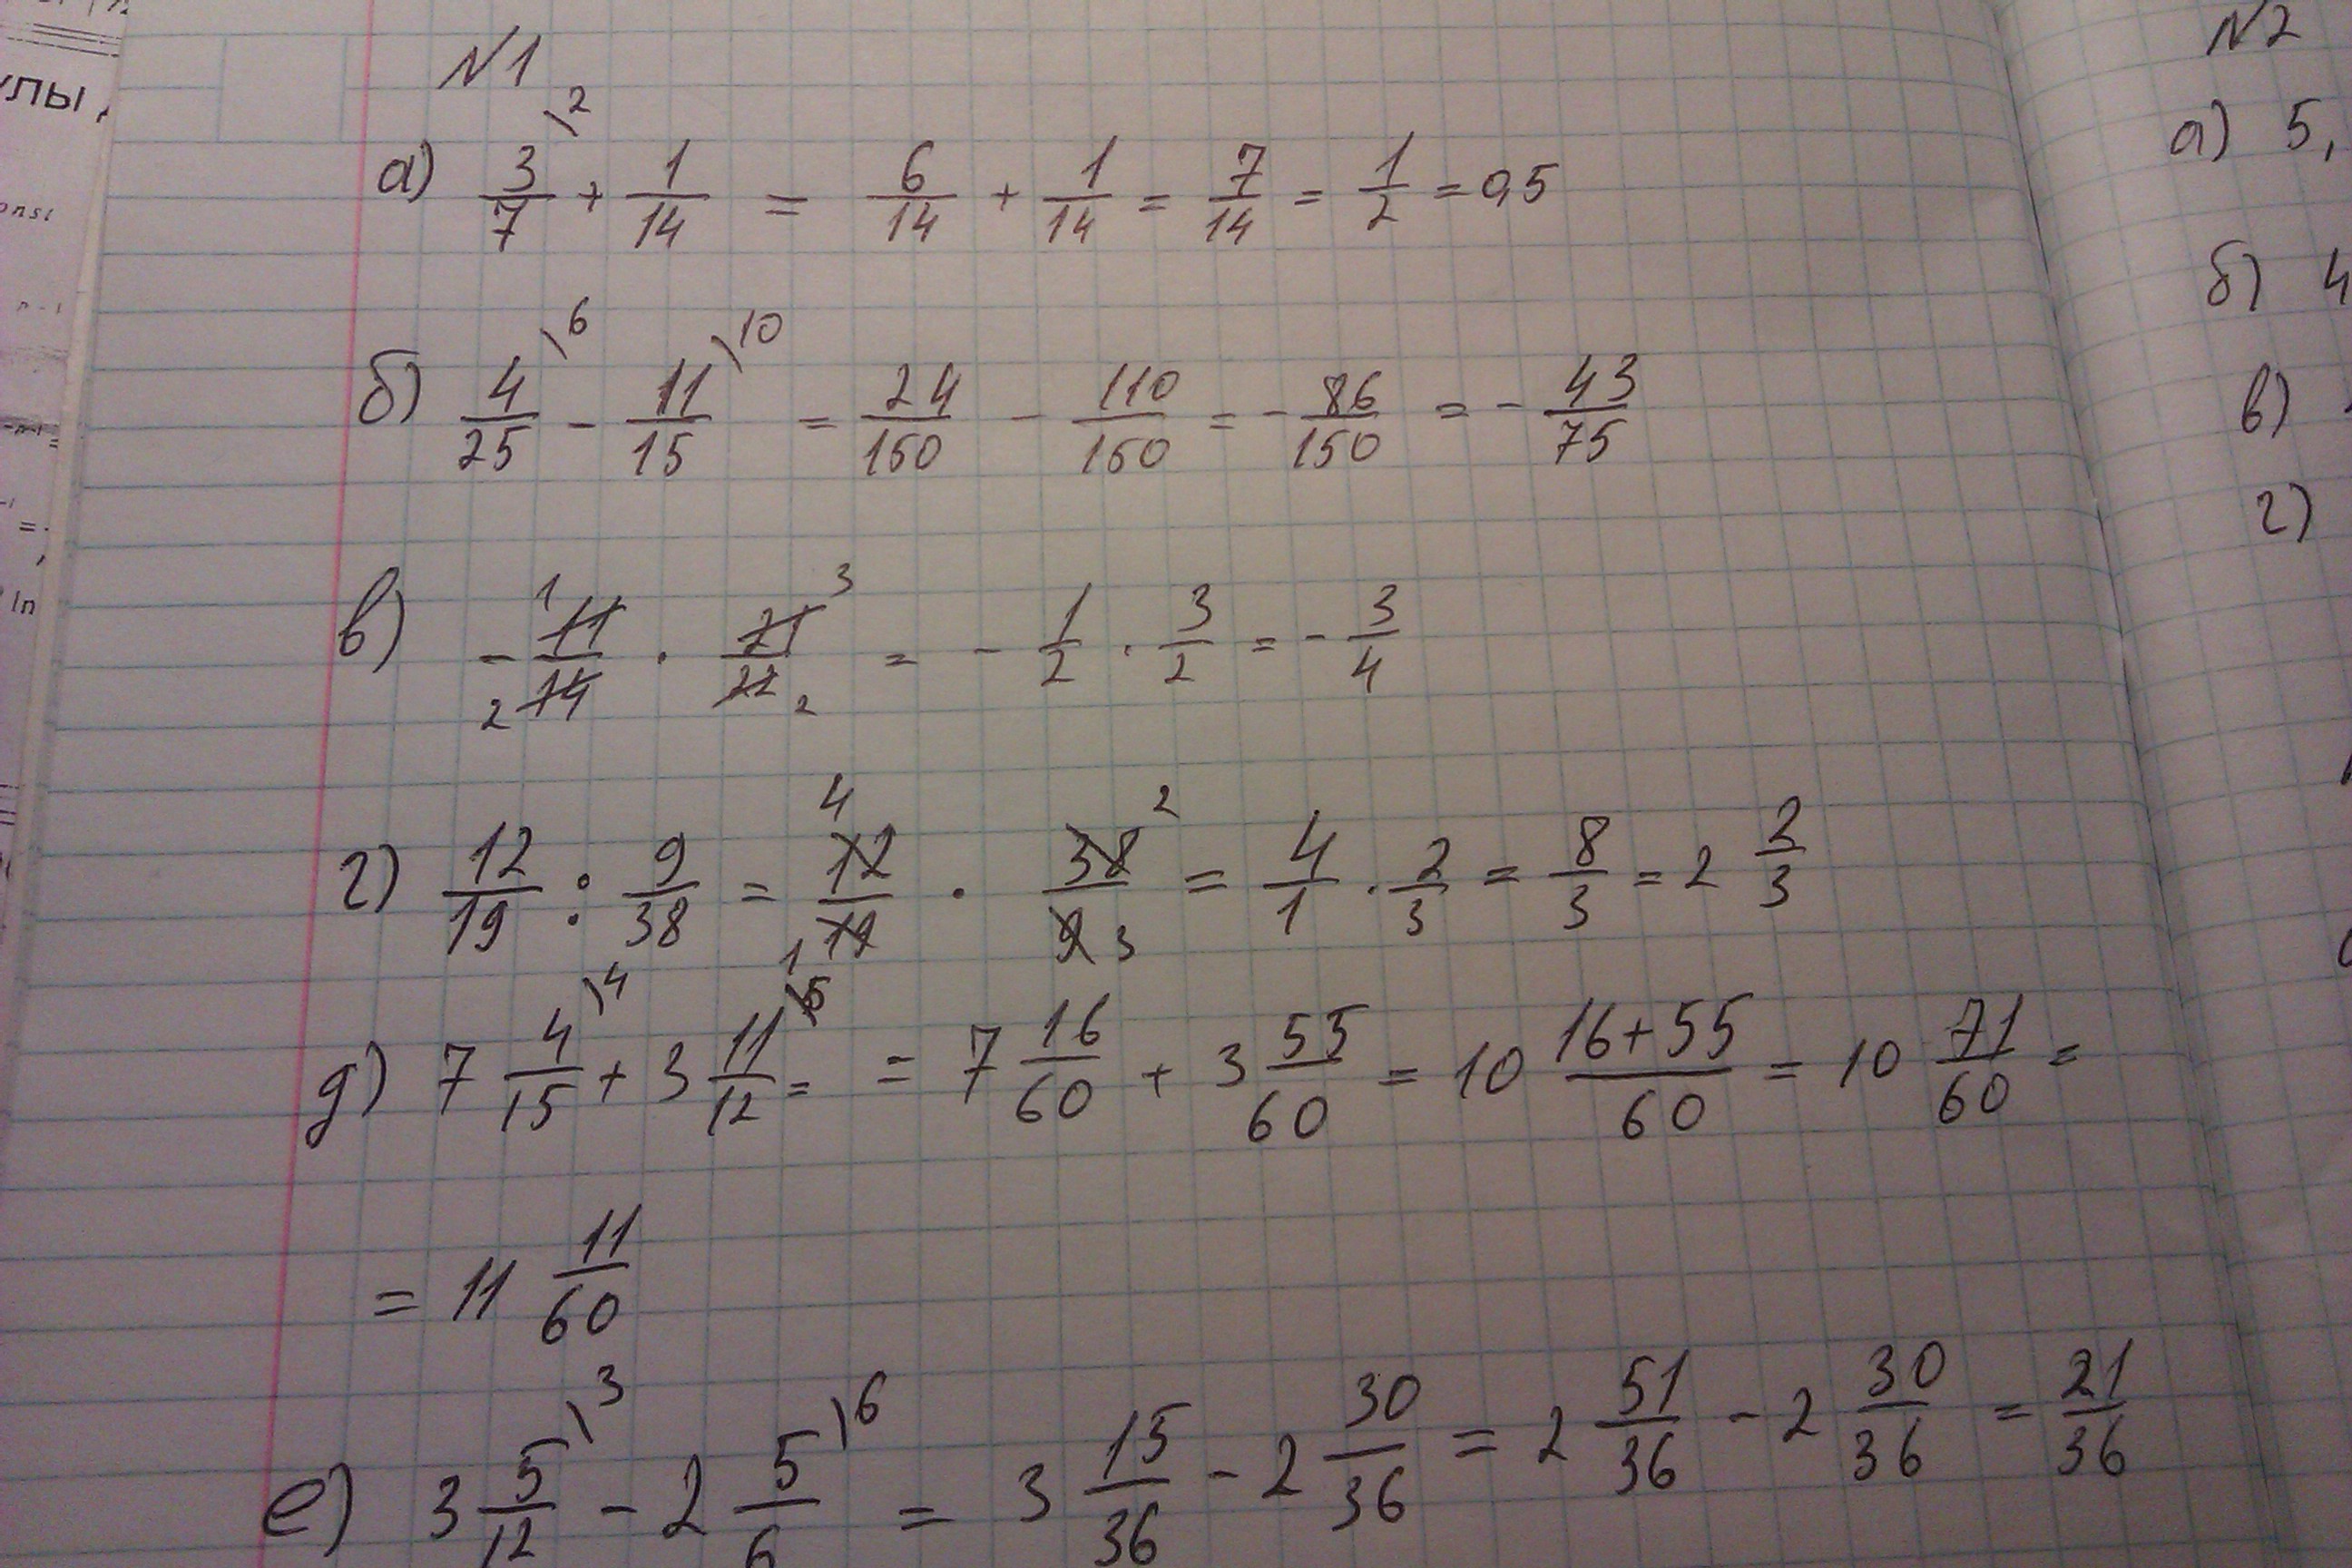 N1
а) 3/7 \2 + 1/14 = 6/14 + 1/14 = 7/14 = 1/2 = 0,5
б) 4/25 \6 - 11/15 \10 = 24/150 - 110/150 = - 86/150 = - 43/75
в) - 11/14 · 21/22 = - 1/2 · 3/2 = - 3/4
г) 12/19 : 9/38 = 12/19 · 38/9 = 4/1 · 2/3 = 8/3 = 2 2/3
д) 7 4/15 \4 + 3 11/12 \5 = = 7 16/60 + 3 55/60 = 10 (16+55)/60 = 10 71/60 =
= 11 11/60
е) 3 5/12 \3 - 2 5/6 \6 = 3 15/36 - 2 30/36 = 2 51/36 - 2 30/36 = 21/36
N2
а) 5,
б) 4
в)
г)
улы
ln